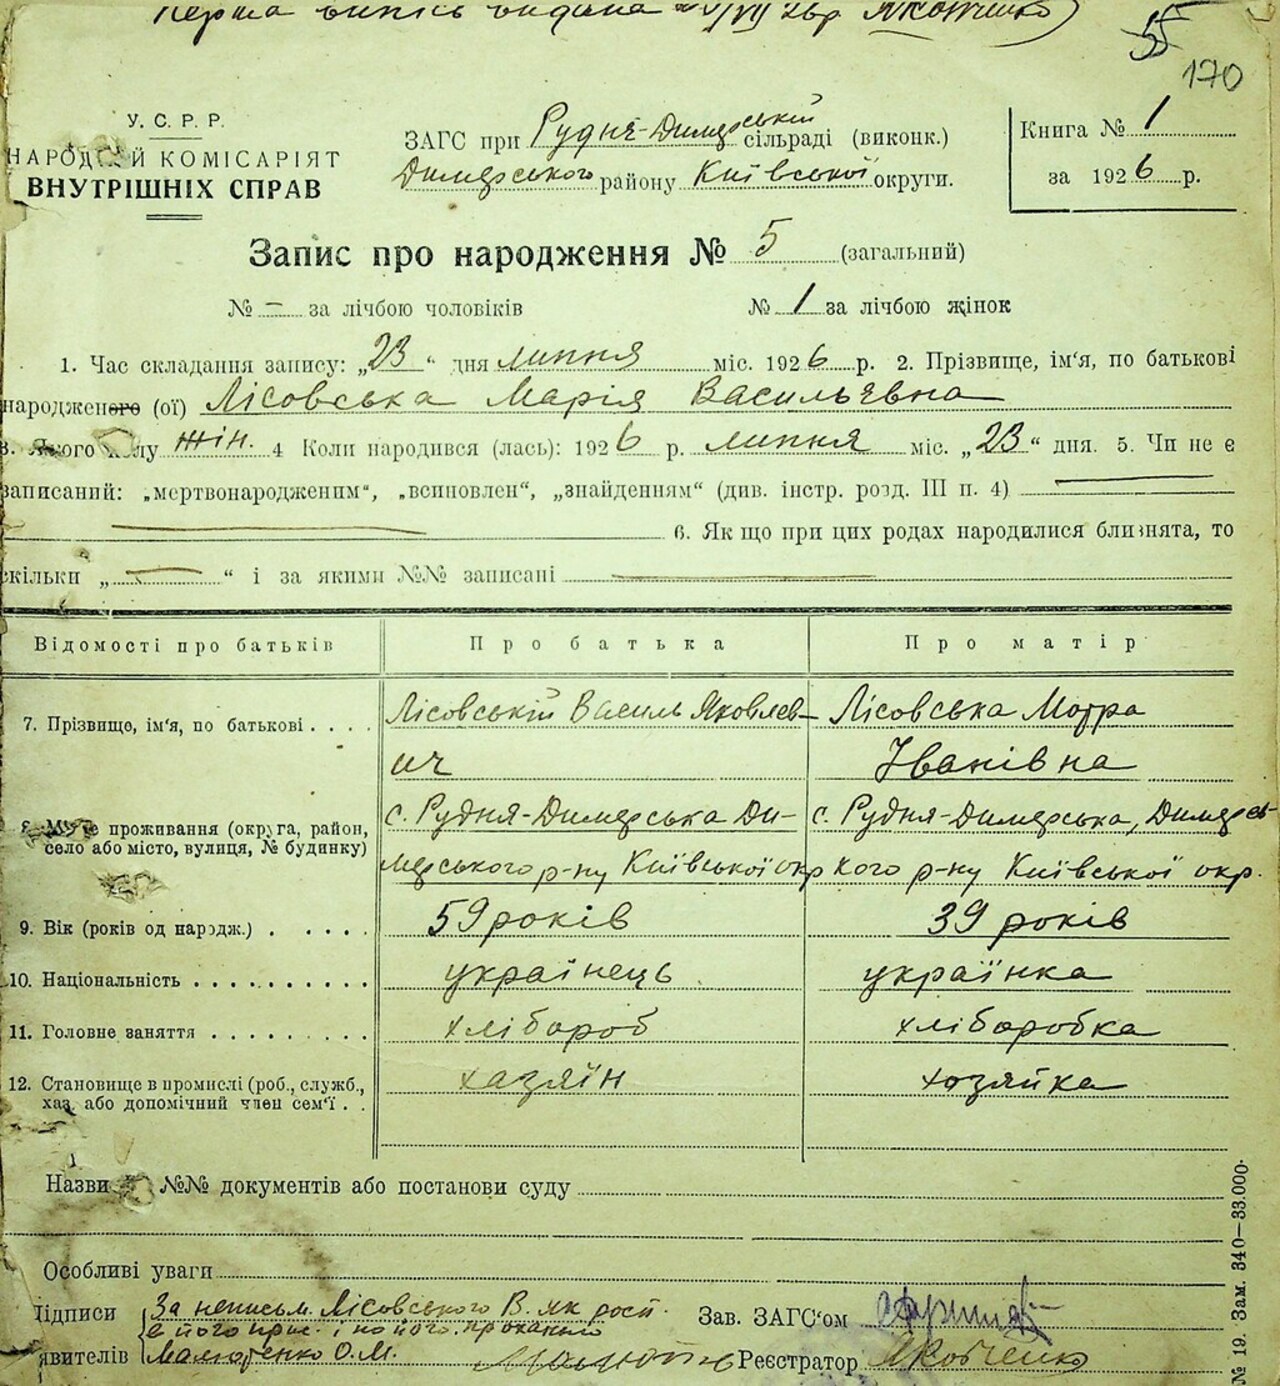 Перша випись видана 23/VII 26р Яковченко
55
170
У. С. Р. Р.
НАРОДНІЙ КОМІСАРІЯТ
ВНУТРІШНІХ СПРАВ
ЗАГС при Рудня-Димерській сільраді (виконк.)
Димерського району Київської округи.
Книга № 1
за 1926 р.
Запис про народження № 5 (загальний)
№ – за лічбою чоловіків № 1 за лічбою жінок
1. Час складання запису: „23“ дня липня міс. 1926 р. 2. Прізвище, ім‘я, по батькові
народженого (ої) Лісовська Марія Васильевна
3. Якого полу жін. 4 Коли народився (лась): 1926 р. липня міс. „23“ дня. 5. Чи не є
записаний: „мертвонародженим“, „всиновлен“, „знайденням“ (див. інстр. розд. III п. 4)
6. Як що при цих родах народилися близнята, то
скільки „ — “ і за якими №№ записані
Відомості про батьків Про батька Про матір
7. Прізвище, ім‘я, по батькові . . . . Лісовській Василь Яковлев- Лісовська Мотра
ич Іванівна
8. Місце проживання (округа, район, с. Рудня-Димерська Ди- с. Рудня-Димерська, Димерсь-
село або місто, вулиця, № будинку) мерського р-ну Київської окр кого р-ну Київської окр.
9. Вік (років од народж.) . . . . . 59 років 39 років
10. Національність . . . . . . . . . . українець українка
11. Головне заняття . . . . . . . . . хлібороб хліборобка
12. Становище в промислі (роб., служб., хазяїн хозяйка
хаз. або допомічний член сем‘ї . .
Назви №№ документів або постанови суду
Особливі уваги
Підписи За неписьм. Лісовського В. як рост. Зав. ЗАГС‘ом
в його прис. і по його проханню
явителів О.М. Реєстратор Яковченко
№ 19. Зам. 340—33.000.